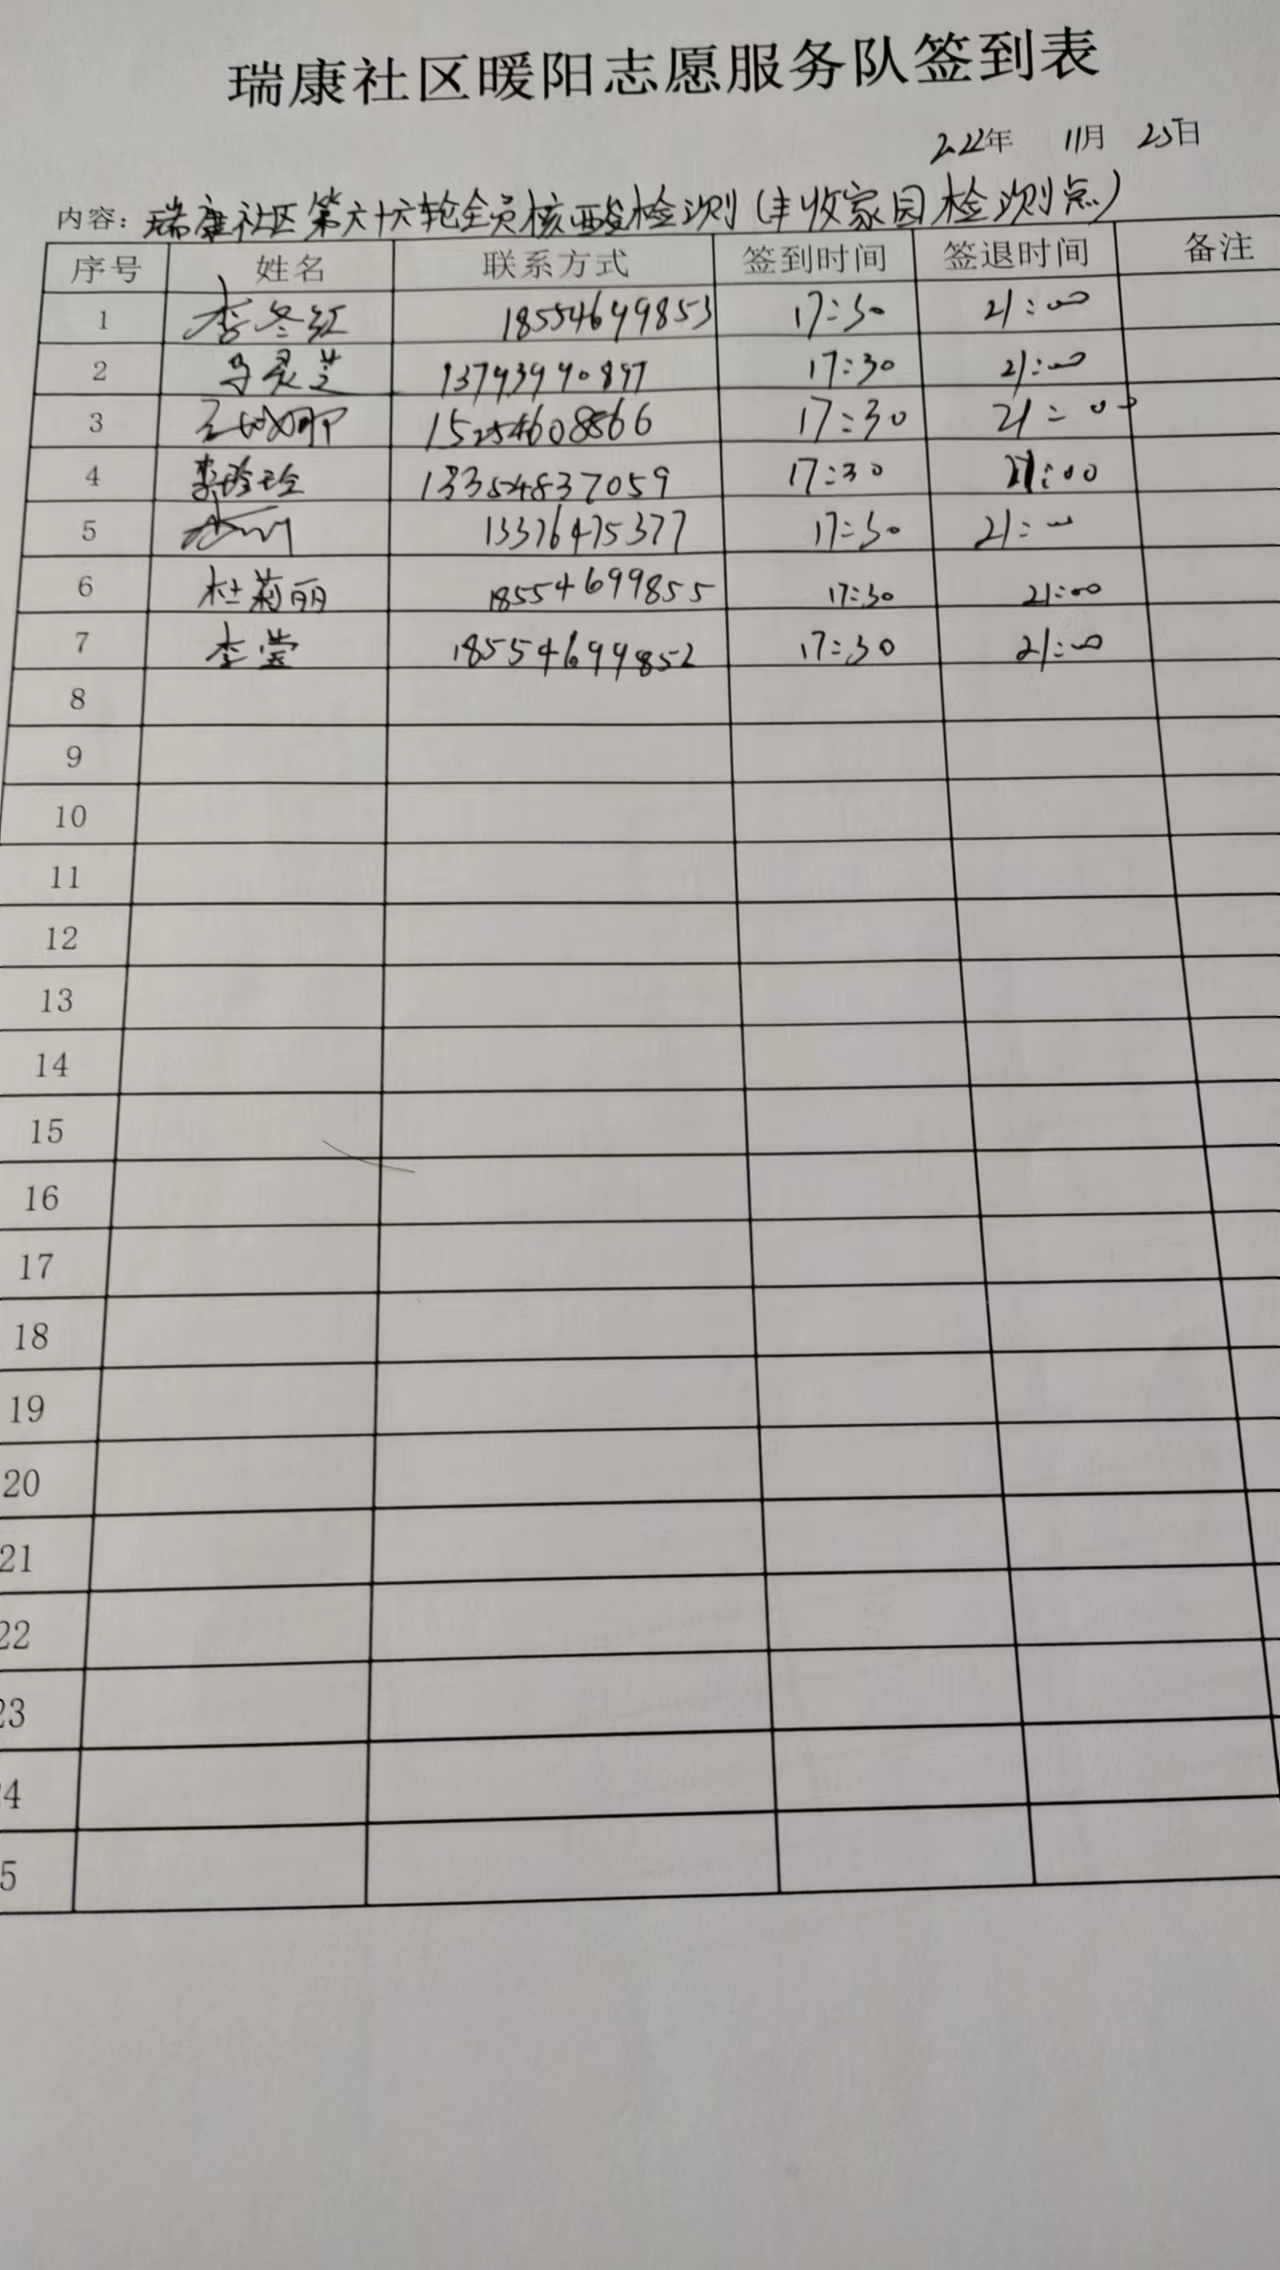 瑞康社区暖阳志愿服务队签到表
2022年 11月 25日
内容：瑞康社区第六十六轮全员核酸检测（丰收家园检测点）
序号 姓名 联系方式 签到时间 签退时间 备注
1 李冬红 18554699853 17:30 21:00
2 马灵芝 13793990897 17:30 21:00
3 15254608566 17:30 21:00
4 李玲玲 13354837059 17:30 21:00
5 13376475377 17:30 21:00
6 杜莉丽 18554699855 17:30 21:00
7 李莹 18554699852 17:30 21:00
8
9
10
11
12
13
14
15
16
17
18
19
20
21
22
23
4
5